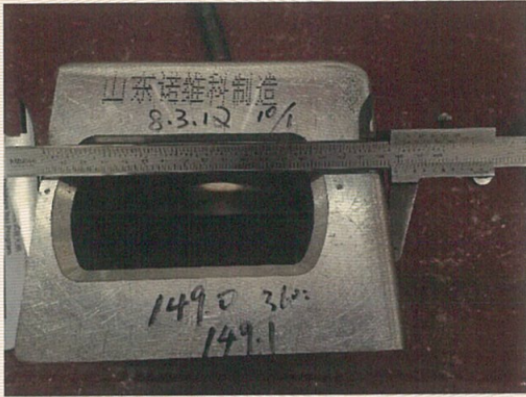 山东诺维科制造
8.3.1Q 10/1
149.0
149.1